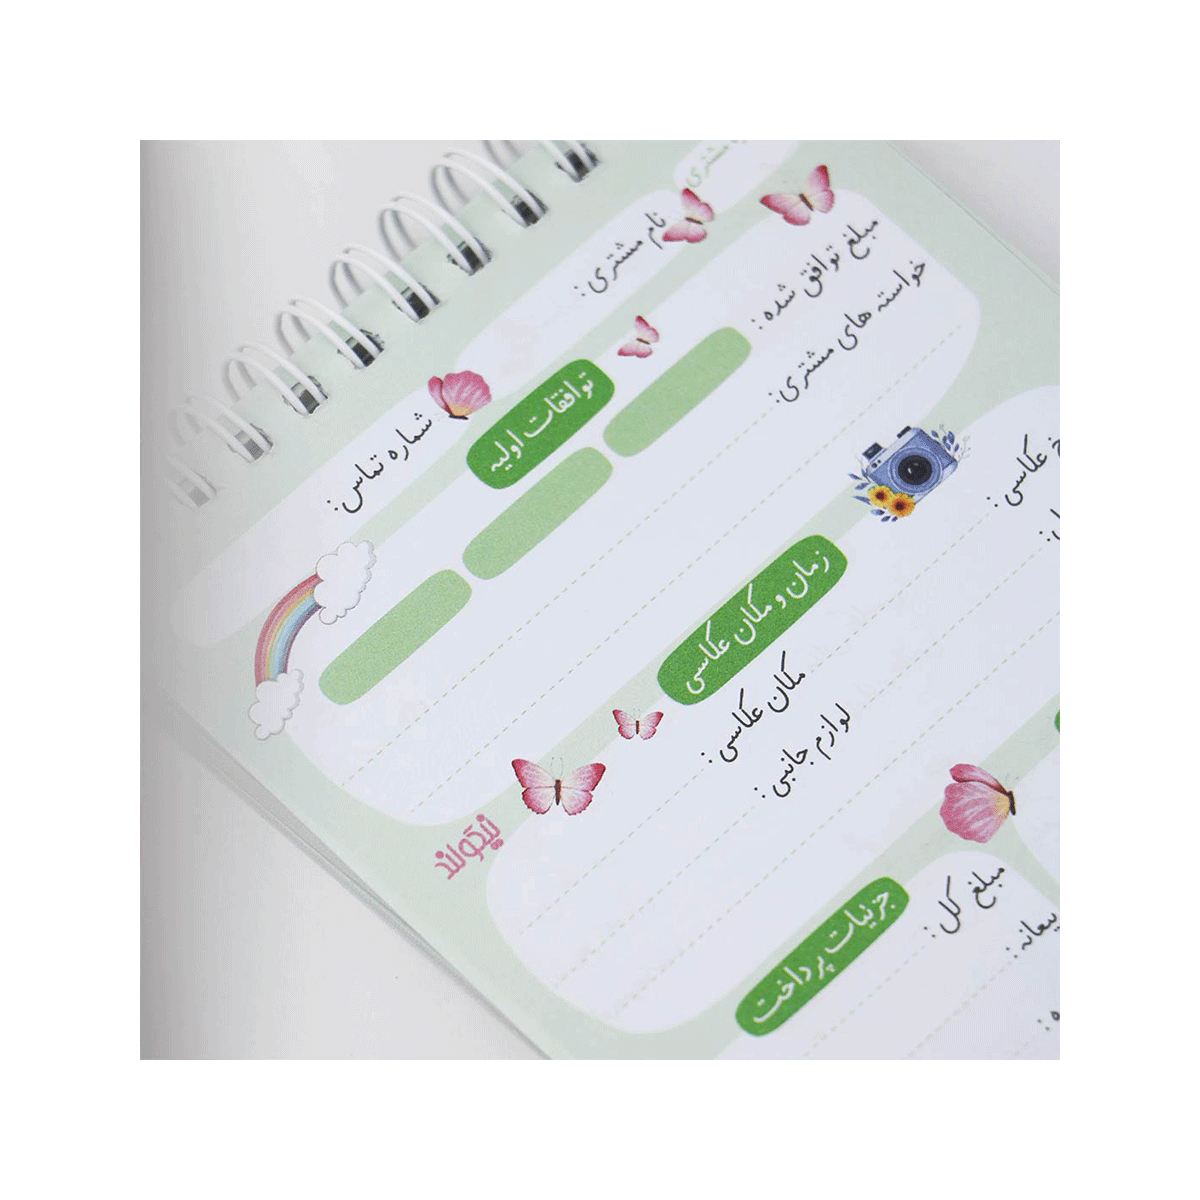 مشتری
نام مشتری:
شماره تماس:
توافقات اولیه
مبلغ توافق شده:
خواسته های مشتری:
زمان و مکان عکاسی
عکاسی:
مکان عکاسی:
لوازم جانبی:
نیکولند
جزئیات پرداخت
مبلغ کل:
بیعانه: